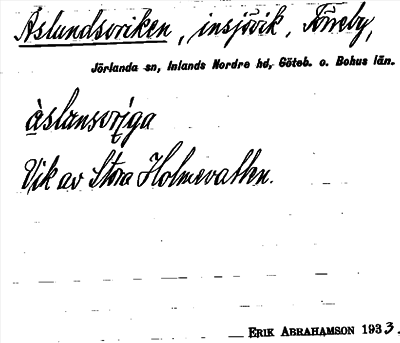 Åslundsviken, insjövik, Töreby,
Jörlanda sn, Inlands Nordre hd, Göteb. o. Bohus län.
àslansvįga
Vik av Stora Holmevatten.
ERIK ABRAHAMSON 1933.